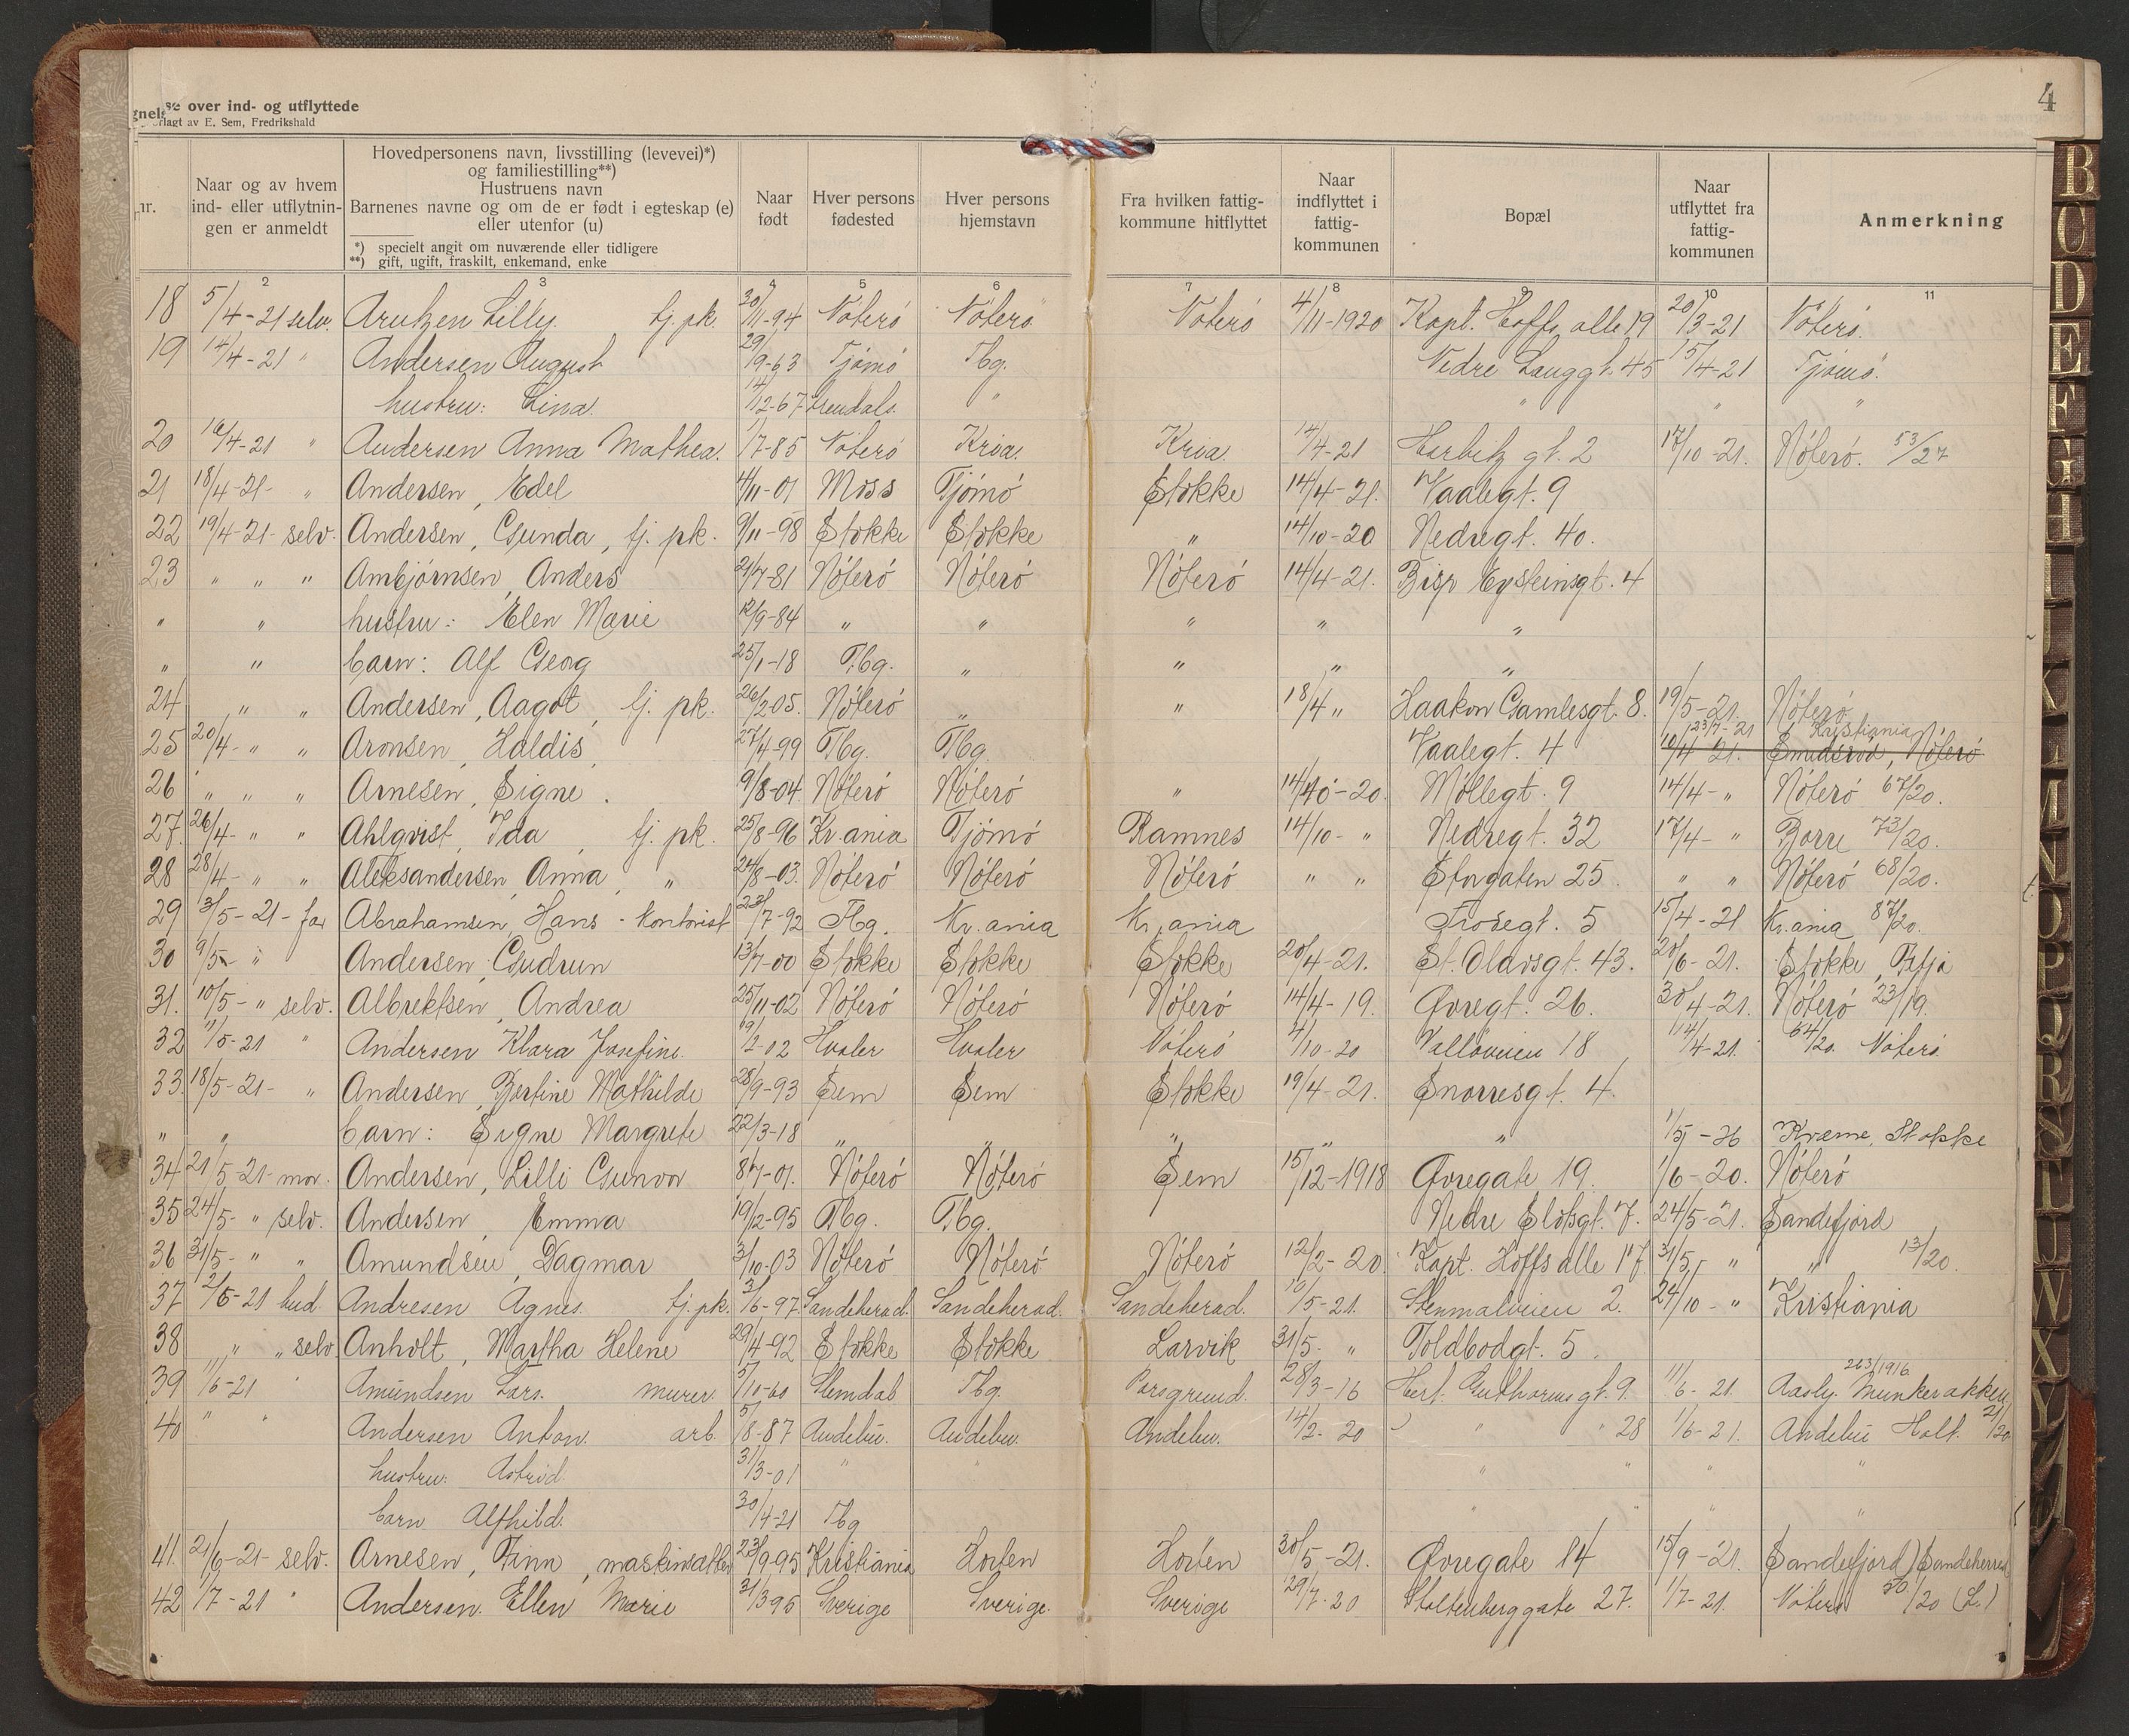 4
se over ind- og utflyttede
rlagt av E. Sem, Fredrikshald
nr. | Naar og av hvem ind- eller utflytnin-gen er anmeldt | Hovedpersonens navn, livsstilling (levevei)*) og familiestilling**) Hustruens navn Barnenes navne og om de er født i egteskap (e) eller utenfor (u) *) specielt angit om nuværende eller tidligere **) gift, ugift, fraskilt, enkemand, enke | Naar født | Hver persons fødested | Hver persons hjemstavn | Fra hvilken fattig-kommune hitflyttet | Naar indflyttet i fattig-kommunen | Bopæl | Naar utflyttet fra fattig-kommunen | Anmerkning
2 3 4 5 6 7 8 9 10 11
18 5/4-21 selv. Arntzen Lilly. tj. pk. 30/11-94 Nöterö Nöterö Nöterö 4/11-1920 Kapt. Hoffs alle 19 20/3-21 Nöterö.
19 14/4-21 " Andersen August 29/9-63 Tjömö Tbg. Nedre Langgt. 45 15/4-21 Tjömö.
hustru: Lina. 14/12-67 " " " "
20 16/4-21 " Andersen Anna Mathea. 1/7-85 Nöterö Kria. Kria. 14/4-21 Harbitz gt. 2 17/10-21. Nöterö. 53/27
21 18/4-21- " Andersen, Edel 4/11-01 Moss Tjömö Stokke 14/4-21. Vaalegt. 9
22 19/4-21- selv. Andersen, Gunda, tj. pk. 9/11-98 Stokke Stokke " 14/10-20 Nedregt. 40.
23 " " " Ambjørnsen, Anders 21/7-81 Nöterö Nöterö Nöterö 14/4-21. Bisp Eysteinsgt. 4
" " hustru: Elen Marie 12/9-84 " " " " "
" " barn: Alf Georg 25/1-18 Tbg. " " " "
24 " " Andersen, Aagot, tj. pk. 26/2 05. Nöterö " " 18/4 " Haakon Gamlesgt. 8. 19/5-21. Nöterö
25 20/4- " " Aronsen, Haldis, 27/4-99 Tbg. Tbg. Vaalegt. 4 23/7-21 Kristiania 10/4 21. Smidsrød, Nöterö
26 " " " Arnesen, Signe. 9/8-04 Nöterö Nöterö " 14/10-20. Möllegt. 9 14/4- " Nöterö 67/20.
27. 26/4- " " Ahlqvist, Ida, tj. pk. 25/8-96 Kr.ania Tjömö Ramnes 14/10- " Nedregt. 32 17/4- " Borre 73/20.
28 28/4- " " Aleksandersen, Anna, " 24/8-03. Nöterö Nöterö Nöterö " " Storgaten 25. " " Nöterö 68/20.
29 3/5-21- far Abrahamsen, Hans - kontorist 23/7-92 Tbg. Kr.ania Kr.ania Frosegt. 5 15/4-21 Kr.ania 87/20.
30 9/5- " Andersen Gudrun 13/7-00 Stokke Stokke Stokke 20/4-21. St. Olavsgt. 43. 20/6-21. Stokke,
31. 10/5- " selv. Albrektsen, Andrea 25/11-02 Nöterö Nöterö Nöterö 14/4-19. Øvregt. 26. 30/4-21. Nöterö 23/19.
32 11/5-21 " Andersen Klara Josefine. 19/2-02 Hvaler Hvaler Nöterö 4/10-20 Vallöveien 18 14/4-21. 64/20. Nöterö
33. 18/5-21- " Andersen, Bertine Mathilde 28/9-93 Sem Sem Stokke 19/4-21. Snorresgt. 4.
" " barn: Signe Margrete 22/3-18 " " " " " 1/5-26 Kræme, Stokke
34 21/5-21- mor. Andersen, Lilli Gunvor 8/7-01. Nöterö Nöterö Sem 15/12-1918 Øvregate 19. 1/6-20. Nöterö
35 24/5- " selv. Andersen, Emma 19/2-95 Tbg. Tbg. Nedre Slotsgt. 7. 24/5-21. Sandefjord
36 31/5- " " Amundsen, Dagmar 3/10-03 Nöterö Nöterö Nöterö 12/2-20 Kapt. Hoffs alle 17 31/5, " " 13/20.
37 2/6-21 bud Andresen Agnes. tj. pk. 3/6-97. Sandeherad. Sandeherad. Sandeherad. 10/5-21. Stenmalveien 2. 24/10- " Kristiania
38 " " selv Anholt, Martha Helene 29/4-92 Stokke Stokke Larvik 31/5- " Toldbodgt. 5.
39 11/6-21 " Amundsen Lars. murer. 5/10-60 Slemdal Tbg. Porsgrund. 28/3-16 Hert. Guthormsgt. 9. 11/6-21. 263/1916 Aasly. Munkerakken
40 " " Andersen Anton. arb. 5/8-87 Andebu. Andebu. Andebu. 14/2-20 " " 28 1/6-21. Andebu Holt. 21/20
hustru: Astrid. 31/3-01 " " " " " "
barn Alfhild. 30/4-21 Tbg " " "
41. 21/6-21- selv. Arnesen, Finn, maskinsætter 23/9-95 Kristiania Horten Horten 30/5-21. Øvregate 14 15/9-21. Sandefjord) Sandeherred
42 1/7-21 " Andersen. Ellen Marie 31/3 95 Sverige Sverige. Sverige 29/7-20 Stoltenberggate 27. 1/7-21. Nöterö 50/20 (L.)
B
C
D
E
F
G
H
I
J
K
L
M
N
O
P
Q
R
S
T
U
V
X
Y